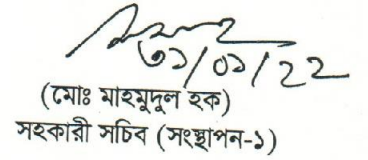 ৩১/০১/২২
(মোঃ মাহমুদুল হক)
সহকারী সচিব (সংস্থাপন-১)